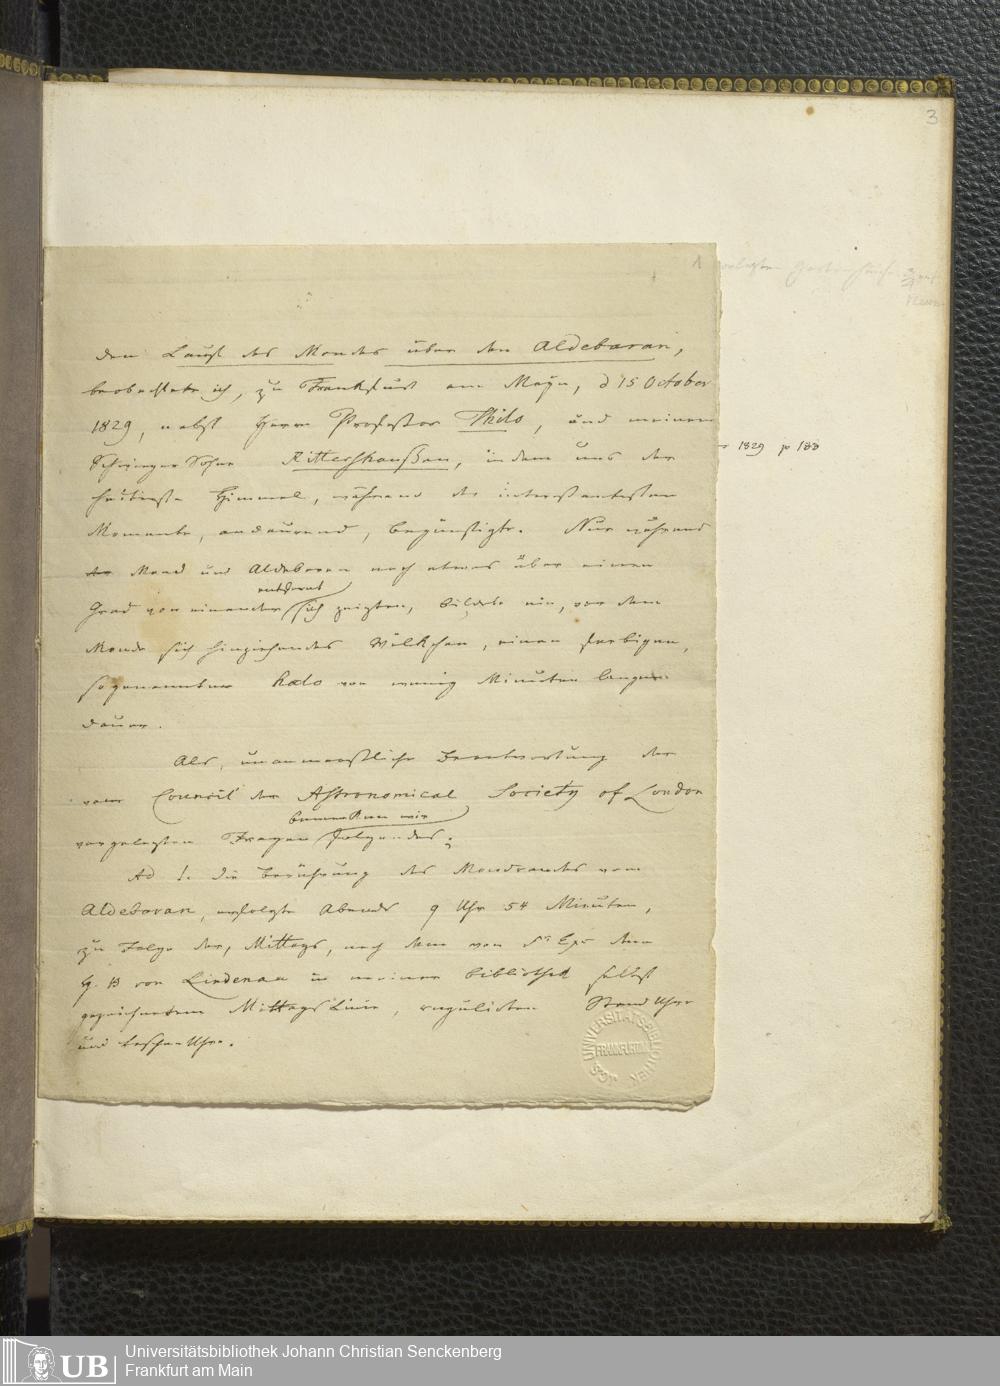 3
1
den Lauf des Mondes über den Aldebaran,
beobachtete ich, zu Frankfurt am Mayn, d 15 October
1829, nebst Herrn Professor Thilo, und meinem
Schwieger Sohne Rittershaußen, indem uns der
heiterste Himmel, während der interessantesten
Momente, andaurend, begünstigte. Nur während
Mond und Aldebaran noch etwas über einen
entfernt
Grad von einander sich zeigten, bildete ein, vor dem
Monde sich hinziehendes Wölkchen, einen farbigen,
sogenannten Halo von wenig Minuten langer
Dauer.
Als, unanmaaßliche Beantwortung der
vom Council der Astronomical Society of London
bemerken wir
vorgelegten Fragen folgendes:
Ad 1. Die Berührung des Mondrandes vom
Aldebaran, erfolgte Abends 9 Uhr 54 Minuten,
zu Folge der, Mittags, nach dem von Sr Exc dem
H. B von Lindenau in meiner Bibliothek selbst
gezeichneten Mittags Linie, regulirten Stand Uhr
und Taschen Uhr.
1829 p 188
UNIVERSITÄTSBIBLIOTHEK
FRANKFURT/M.
JCS
UB
Universitätsbibliothek Johann Christian Senckenberg
Frankfurt am Main